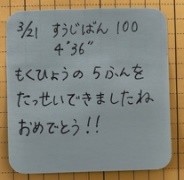 3/21 すうじばん 100
4'36"
もくひょうの 5ふんを
たっせいできましたね
おめでとう!!